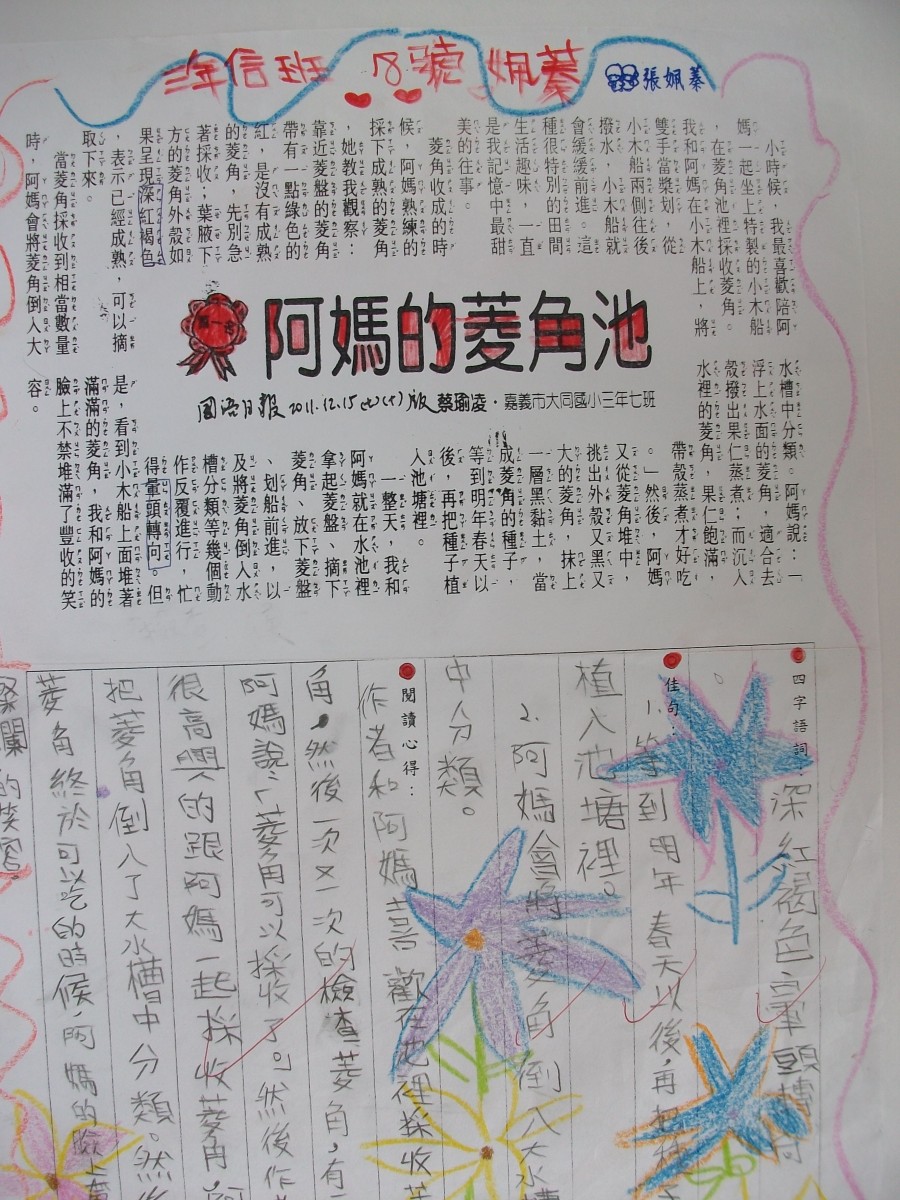 三年信班 8號 姵蓁 張姵蓁
小時候,我最喜歡陪阿
媽一起坐上特製的小木船
,在菱角池裡採收菱角。
我和阿媽在小木船上,將
雙手當漿划,從
小木船兩側往後
撥水,小木船就
會緩緩前進。這
種很特別的田間
生活趣味,一直
是我記憶中最甜
美的往事。
菱角收成的時
候,阿媽熟練的
採下成熟的菱角
,她教我觀察:
靠近菱盤的菱角
帶有一點綠色的
紅,是沒有成熟
的菱角,先別急
著採收;葉腋下
方的菱角外殼如
果呈現深紅褐色
,表示已經成熟,可以摘
取下來。
當菱角採收到相當數量
時,阿媽會將菱角倒入大
第一名
阿媽的菱角池
國語日報 2011.12.15(七)版 蔡瑜凌・嘉義市大同國小三年七班
水槽中分類。阿媽說:「
浮上水面的菱角,適合去
殼撥出果仁蒸煮;而沉入
水裡的菱角,果仁飽滿,
帶殼蒸煮才好吃
。」然後,阿媽
又從菱角堆中,
挑出外殼又黑又
大的菱角,抹上
一層黑黏土,當
成菱角的種子,
等到明年春天以
後,再把種子植
入池塘裡。
一整天,我和
阿媽就在水池裡
拿起菱盤、摘下
菱角、放下菱盤
、划船前進,以
及將菱角倒入水
槽分類等幾個動
作反覆進行,忙
得暈頭轉向。但
是,看到小木船上面堆著
滿滿的菱角,我和阿媽的
臉上不禁堆滿了豐收的笑
容。
四字語詞:深紅褐色 暈頭轉向
。
佳句:1.等到明年春天以後,再把種
植入池塘裡。
2.阿媽會將菱角倒入大水槽
中分類。
閱讀心得:
作者和阿媽喜歡在池裡採收菱
角,然後一次又一次的檢查菱角,有
阿媽說:「菱角可以採收了。」然後作
很高興的跟阿媽一起採收菱角,阿
把菱角倒入了大水槽中分類。然後
菱角終於可以吃的時候,阿媽的臉上
燦爛的笑容